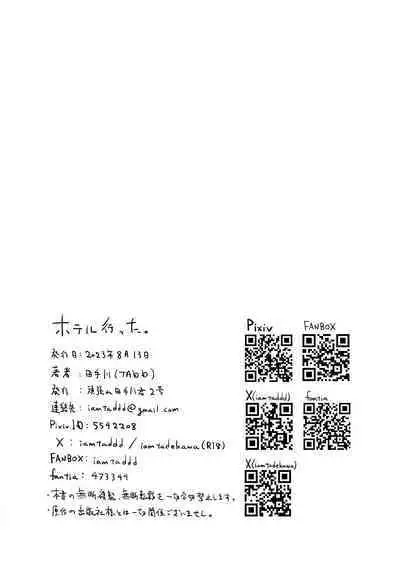 ホテル行った。
発行日：2023年8月13日
著者：田手川(TAbb)
発行：田手川古2号
連絡先：iamtaddd@gmail.com
Pixiv ID：5542208
X：iamtaddd / iamtadekawa(R18)
FANBOX：iamtaddd
fantia：473344
・本書の無断複製、無断転載を一切禁止します。
・原作の出版社様とは一切関係ございません。
Pixiv
FANBOX
X(iamtaddd)
fantia
X(iamtadekawa)